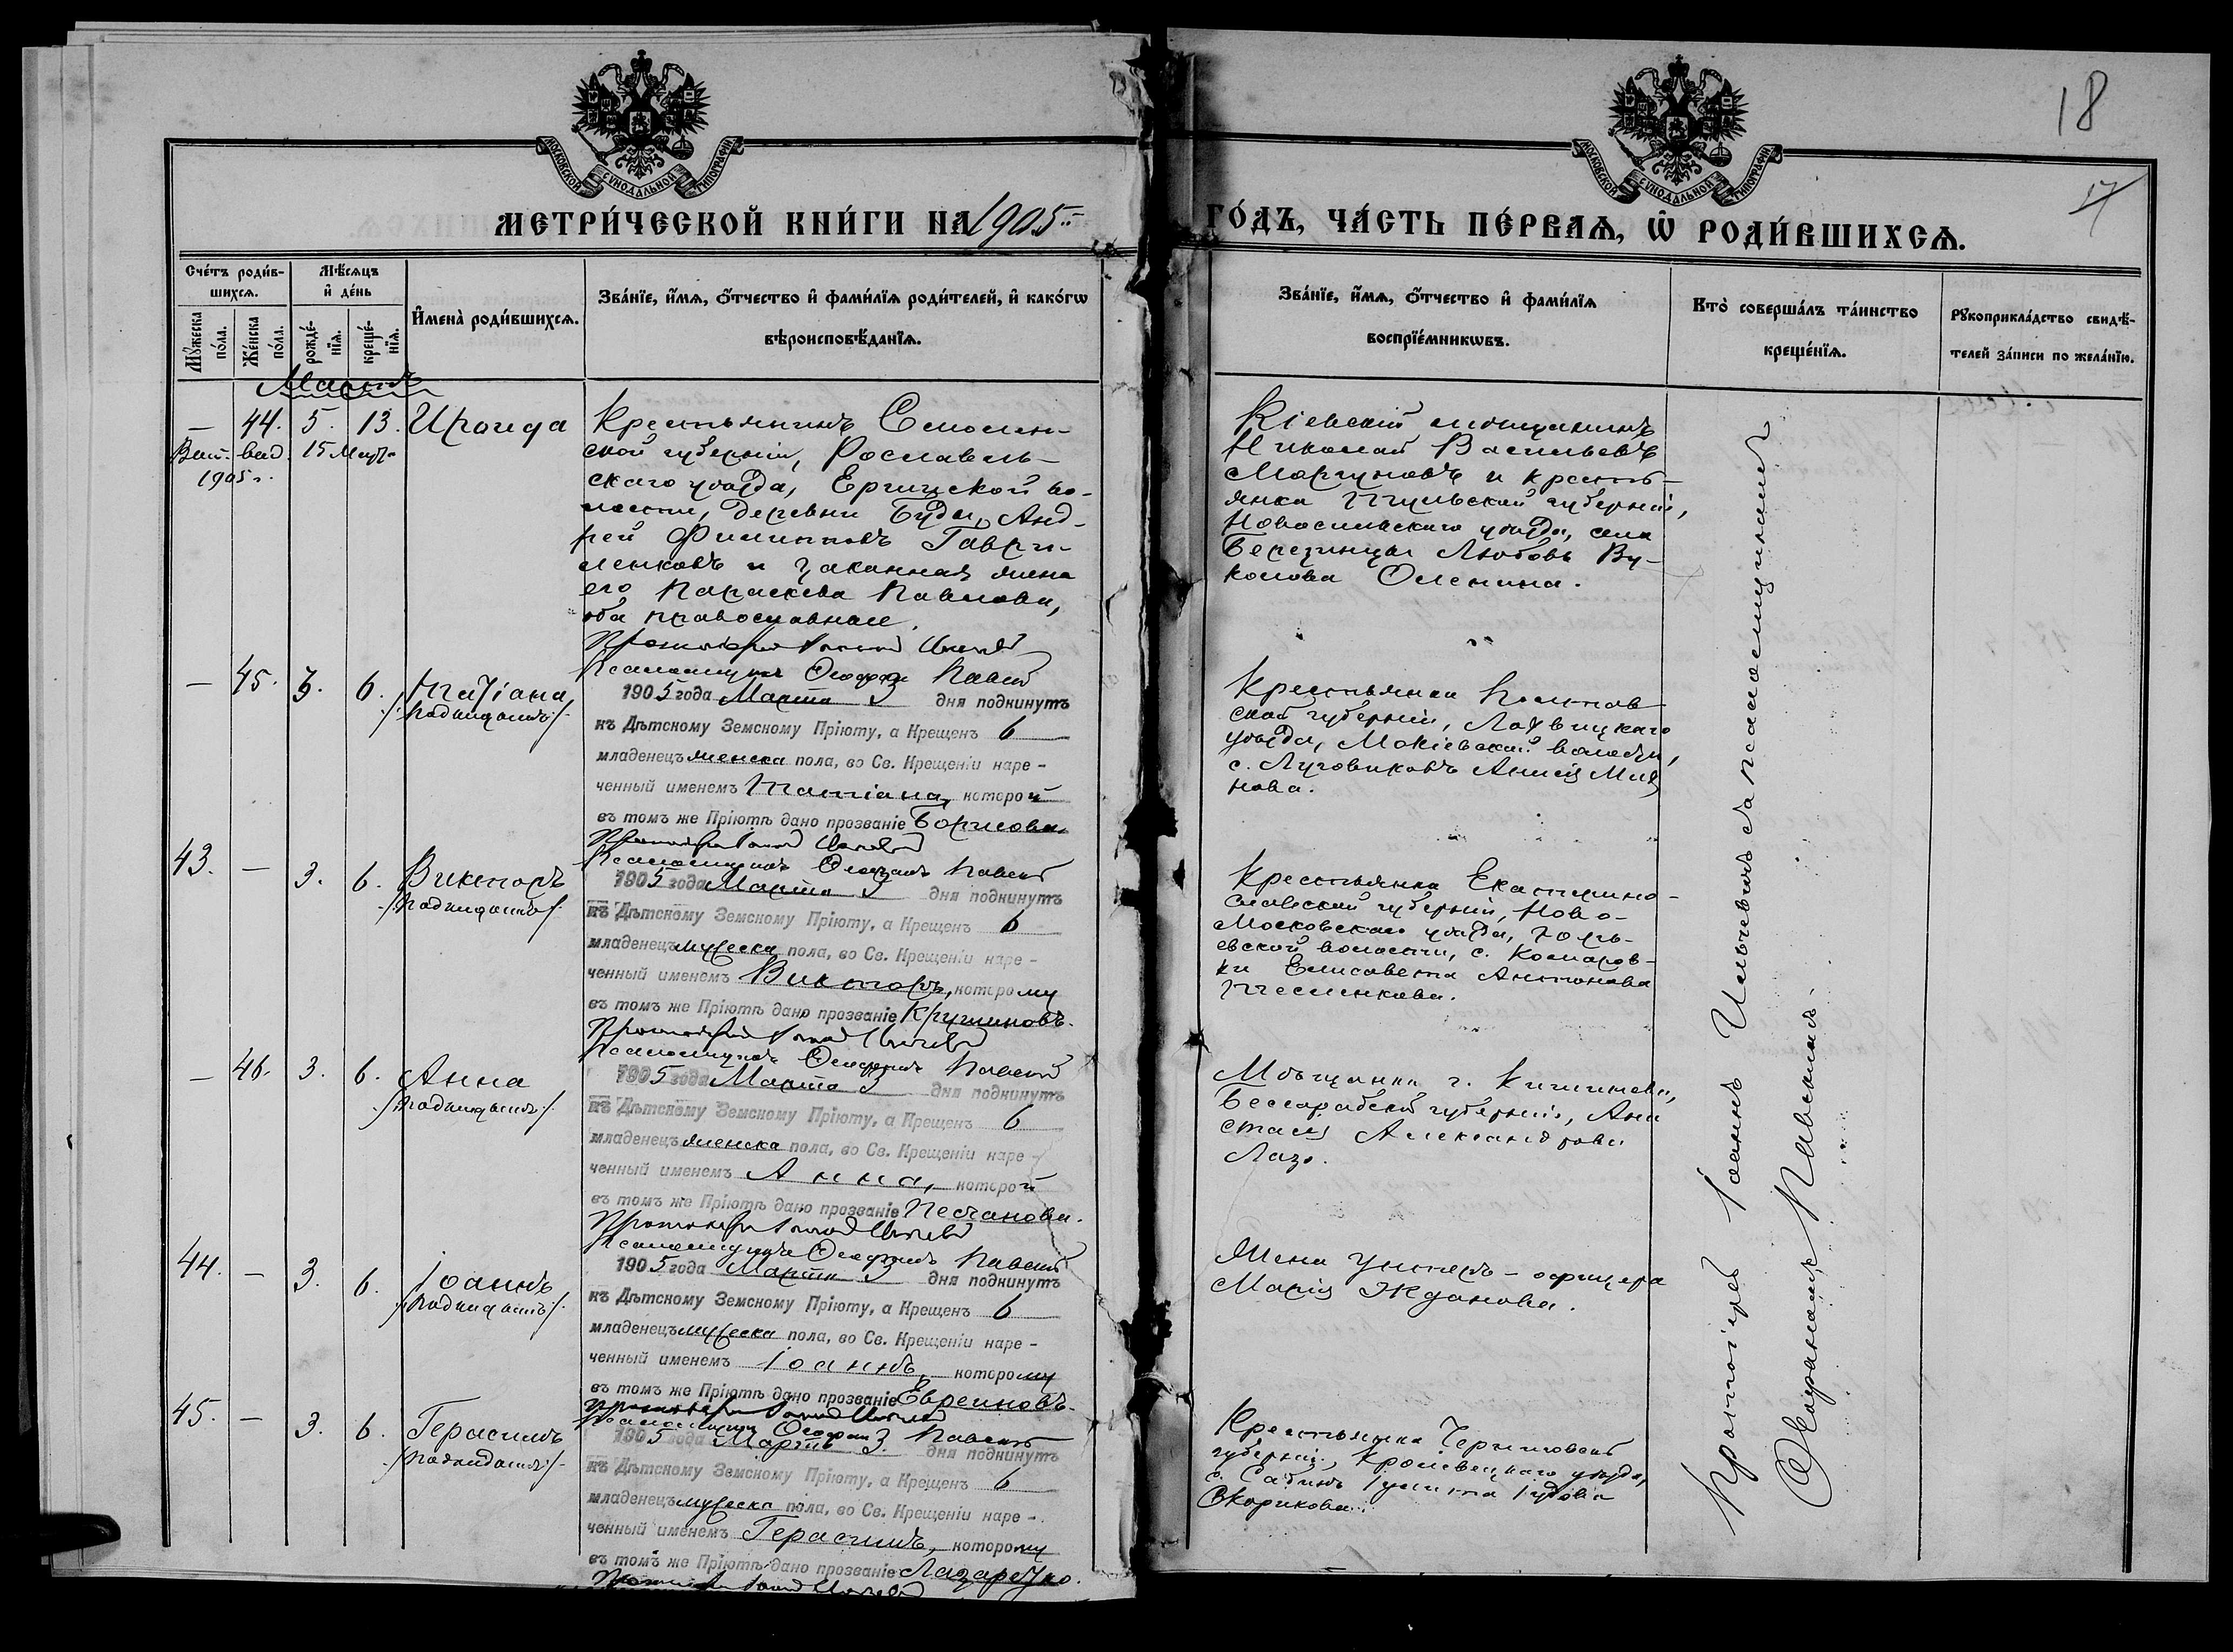 18
17
МОСКОВСКОЙ СѴНОДАЛЬНОЙ ТИПОГРАФІИ
МОСКОВСКОЙ СѴНОДАЛЬНОЙ ТИПОГРАФІИ
МЕТРИ́ЧЕСКОЙ КНИ́ГИ НА 1905
ГО́ДЪ, ЧА́СТЬ ПЕ́РВАѦ, Ѿ РОДИ́ВШИХСѦ.
Сче́тъ роди́в-
шихсѧ.
Мꙋ́жеска по́ла.
Же́нска по́ла.
Мѣ́сѧцъ
и҆ де́нь
рожде́-
нїѧ.
креще́-
нїѧ.
И҆мена̀ роди́вшихсѧ.
Зва́нїе, и҆́мѧ, ѻ҆́тчество и҆ фами́лїѧ роди́телей, и҆ како́гѡ
вѣроисповѣ́данїѧ.
Зва́нїе, и҆́мѧ, ѻ҆́тчество и҆ фами́лїѧ
воспрїе́мникѡвъ.
Кто̀ соверша́лъ та́инство
креще́нїѧ.
Рꙋкоприкла́дство свидѣ́-
телей за́писи по жела́нїю.
Мартъ
— 44. 5. 13. Ираида
Вып. выд. 15 Мар.
1905 г.
Крестьянинъ Смолен-
ской губерніи, Рославль-
скаго уѣзда, во-
лости, деревни Буды, Анд-
рей Филипповъ Гаври-
ленковъ и законная жена
его Параскева Павлова,
оба православные.
Протоіерей Іоаннъ Ильичевъ
Псаломщикъ Ѳеофанъ Павскій
Кіевскій мѣщанинъ
Николай Васильевъ
Моргуновъ и кресть-
янка Тульской губерніи,
Новосильскаго уѣзда, села
Березинцы Любовь Ву-
колова Оленина.
— 45. 3. 6. Татіана
/подкидышъ/
1905 года Марта 3 дня подкинутъ
къ Дѣтскому Земскому Пріюту, а Крещенъ 6
младенецъ женска пола, во Св. Крещеніи наре-
ченный именемъ Татіана, которой
въ томъ же Пріютѣ дано прозваніе Борисова.
Протоіерей Іоаннъ Ильичевъ
Псаломщикъ Ѳеофанъ Павскій
Крестьянка Полтав-
ской губерніи, Лохвицкаго
уѣзда, Мокіевской волости,
с. Луговиковъ Анисія Ми
нова.
43. — 3. 6. Викторъ
/подкидышъ/
1905 года Марта 3 дня подкинутъ
къ Дѣтскому Земскому Пріюту, а Крещенъ 6
младенецъ мужеска пола, во Св. Крещеніи наре-
ченный именемъ Викторъ, которому
въ томъ же Пріютѣ дано прозваніе Кружиновъ.
Протоіерей Іоаннъ Ильичевъ
Псаломщикъ Ѳеофанъ Павскій
Крестьянка Екатерино-
славской губерніи, Ново-
Московскаго уѣзда,
евской волости, с. Комаров-
ки Елисавета Антонова
Тесленкова.
— 46. 3. 6. Анна
/подкидышъ/
1905 года Марта 3 дня подкинутъ
къ Дѣтскому Земскому Пріюту, а Крещенъ 6
младенецъ женска пола, во Св. Крещеніи наре-
ченный именемъ Анна, которой
въ томъ же Пріютѣ дано прозваніе Песчанова.
Протоіерей Іоаннъ Ильичевъ
Псаломщикъ Ѳеофанъ Павскій
Мѣщанка г. Кишинева,
Бессарабской губерніи, Ана
стасія Александрова
Лазо.
44. — 3. 6. Іоаннъ
/подкидышъ/
1905 года Марта 3 дня подкинутъ
къ Дѣтскому Земскому Пріюту, а Крещенъ 6
младенецъ мужеска пола, во Св. Крещеніи наре-
ченный именемъ Іоаннъ, которому
въ томъ же Пріютѣ дано прозваніе Евреиновъ.
Протоіерей Іоаннъ Ильичевъ
Псаломщикъ Ѳеофан Павскій
Жена унтеръ-офицера
Марія Жданова.
45. — 3. 6. Герасимъ
/подкидышъ/
1905 года Марта 3 дня подкинутъ
къ Дѣтскому Земскому Пріюту, а Крещенъ 6
младенецъ мужеска пола, во Св. Крещеніи наре-
ченный именемъ Герасимъ, которому
въ томъ же Пріютѣ дано прозваніе Лазаретко.
Протоіерей Іоаннъ Ильичевъ
Крестьянка Черниговской
губерніи, Кролевецкаго уѣзда,
с.
Скорикова.
Протоіерей Іоаннъ Ильичевъ съ псаломщикомъ
Ѳеофаномъ Павскимъ.